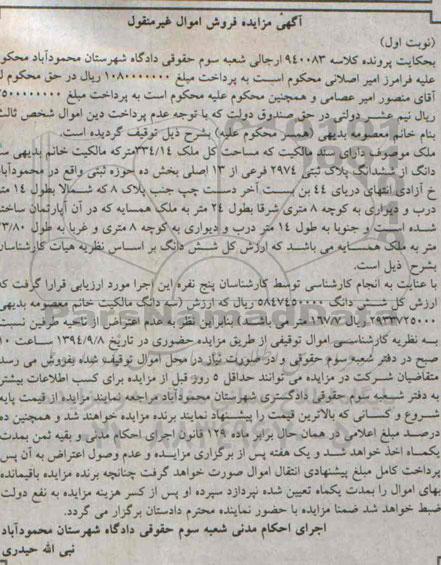 آگهی مزایده فروش اموال غیرمنقول
(نوبت اول)
بحکایت پرونده کلاسه ۹۴۰۰۸۳ ارجالی شعبه سوم حقوقی دادگاه شهرستان محمودآباد محکو
علیه فرامرز امیر اصلانی محکوم است به پرداخت مبلغ ۱۰۸۰۰۰۰۰۰۰ ریال در حق محکوم ل
آقای منصور امیر عصامی و همچنین محکوم علیه محکوم است به پرداخت مبلغ
ریال نیم عشر دولتی در حق صندوق دولت که با توجه عدم پرداخت دین اموال شخص ثالث
بنام خانم معصومه بدیهی (همسر محکوم علیه) بشرح ذیل توقیف گردیده است.
ملک موصوف دارای سند مالکیت که مساحت کل ملک ۳۳۴/۱۴مترکه مالکیت خانم بدیهی سه
دانگ از ششدانگ پلاک ثبتی ۲۹۷۴ فرعی از ۱۳ اصلی بخش ده حوزه ثبتی واقع در محمودآباد
خ آزادی انتهای دریای ۴۴ بن بست آخر دست چپ جنب پلاک ۸ که شمالا بطول ۱۴ متر
درب و دیواری به کوچه ۸ متری شرقا بطول ۲۴ متر به ملک همسایه که در آن آپارتمان ساخته
شده است و جنوبا به طول ۱۴ متر درب و دیواری به کوچه ۸ متری و غربا به طول ۲۳/۸۰
متر به ملک همسایه می باشد که ارزش کل شش دانگ بر اساس نظریه هیات کارشناسان
بشرح ذیل است.
با عنایت به انجام کارشناسی توسط کارشناسان پنج نفره این اجرا مورد ارزیابی قرار گرفت که
ارزش کل شش دانگ ۵۸۴۷۴۵۰۰۰۰ ریال که ارزش (سه دانگ مالکیت خانم معصومه بدیهی
ریال متر می باشد) بنابراین نظر به عدم اعتراض از ناحیه طرفین نسبت
به نظریه کارشناسی اموال توقیفی از طریق مزایده حضوری در تاریخ ۱۳۹۴/۹/۸ ساعت ۱۰
صبح در دفتر شعبه سوم حقوقی و در صورت نیاز در محل اموال توقیف شده بفروش می رسد
متقاضیان شرکت در مزایده می توانند حداقل ۵ روز قبل از مزایده برای کسب اطلاعات بیشتر
به دفتر شعبه سوم حقوقی دادگستری شهرستان محمودآباد مراجعه نمایند مزایده از قیمت پایه
شروع و کسانی که بالاترین قیمت را پیشنهاد نمایند برنده مزایده خواهند شد و همچنین ده
درصد مبلغ اعلامی در همان حال برابر ماده ۱۲۹ قانون اجرای احکام مدنی و بقیه ثمن بمدت
یکماه اخذ خواهد شد و یک هفته پس از برگزاری مزایده و عدم وصول اعتراض به آن پس
پرداخت کامل مبلغ پیشنهادی انتقال اموال صورت خواهد گرفت چنانچه برنده مزایده باقیمانده
بهای اموال را بمدت یکماه تعیین شده نپردازد سپرده او پس از کسر هزینه مزایده به نفع دولت
ضبط خواهد شد ضمنا مزایده با حضور نماینده محترم دادستان برگزار می گردد.
اجرای احکام مدنی شعبه سوم حقوقی دادگاه شهرستان محمودآباد
نبی الله حیدری
ParsNamadData